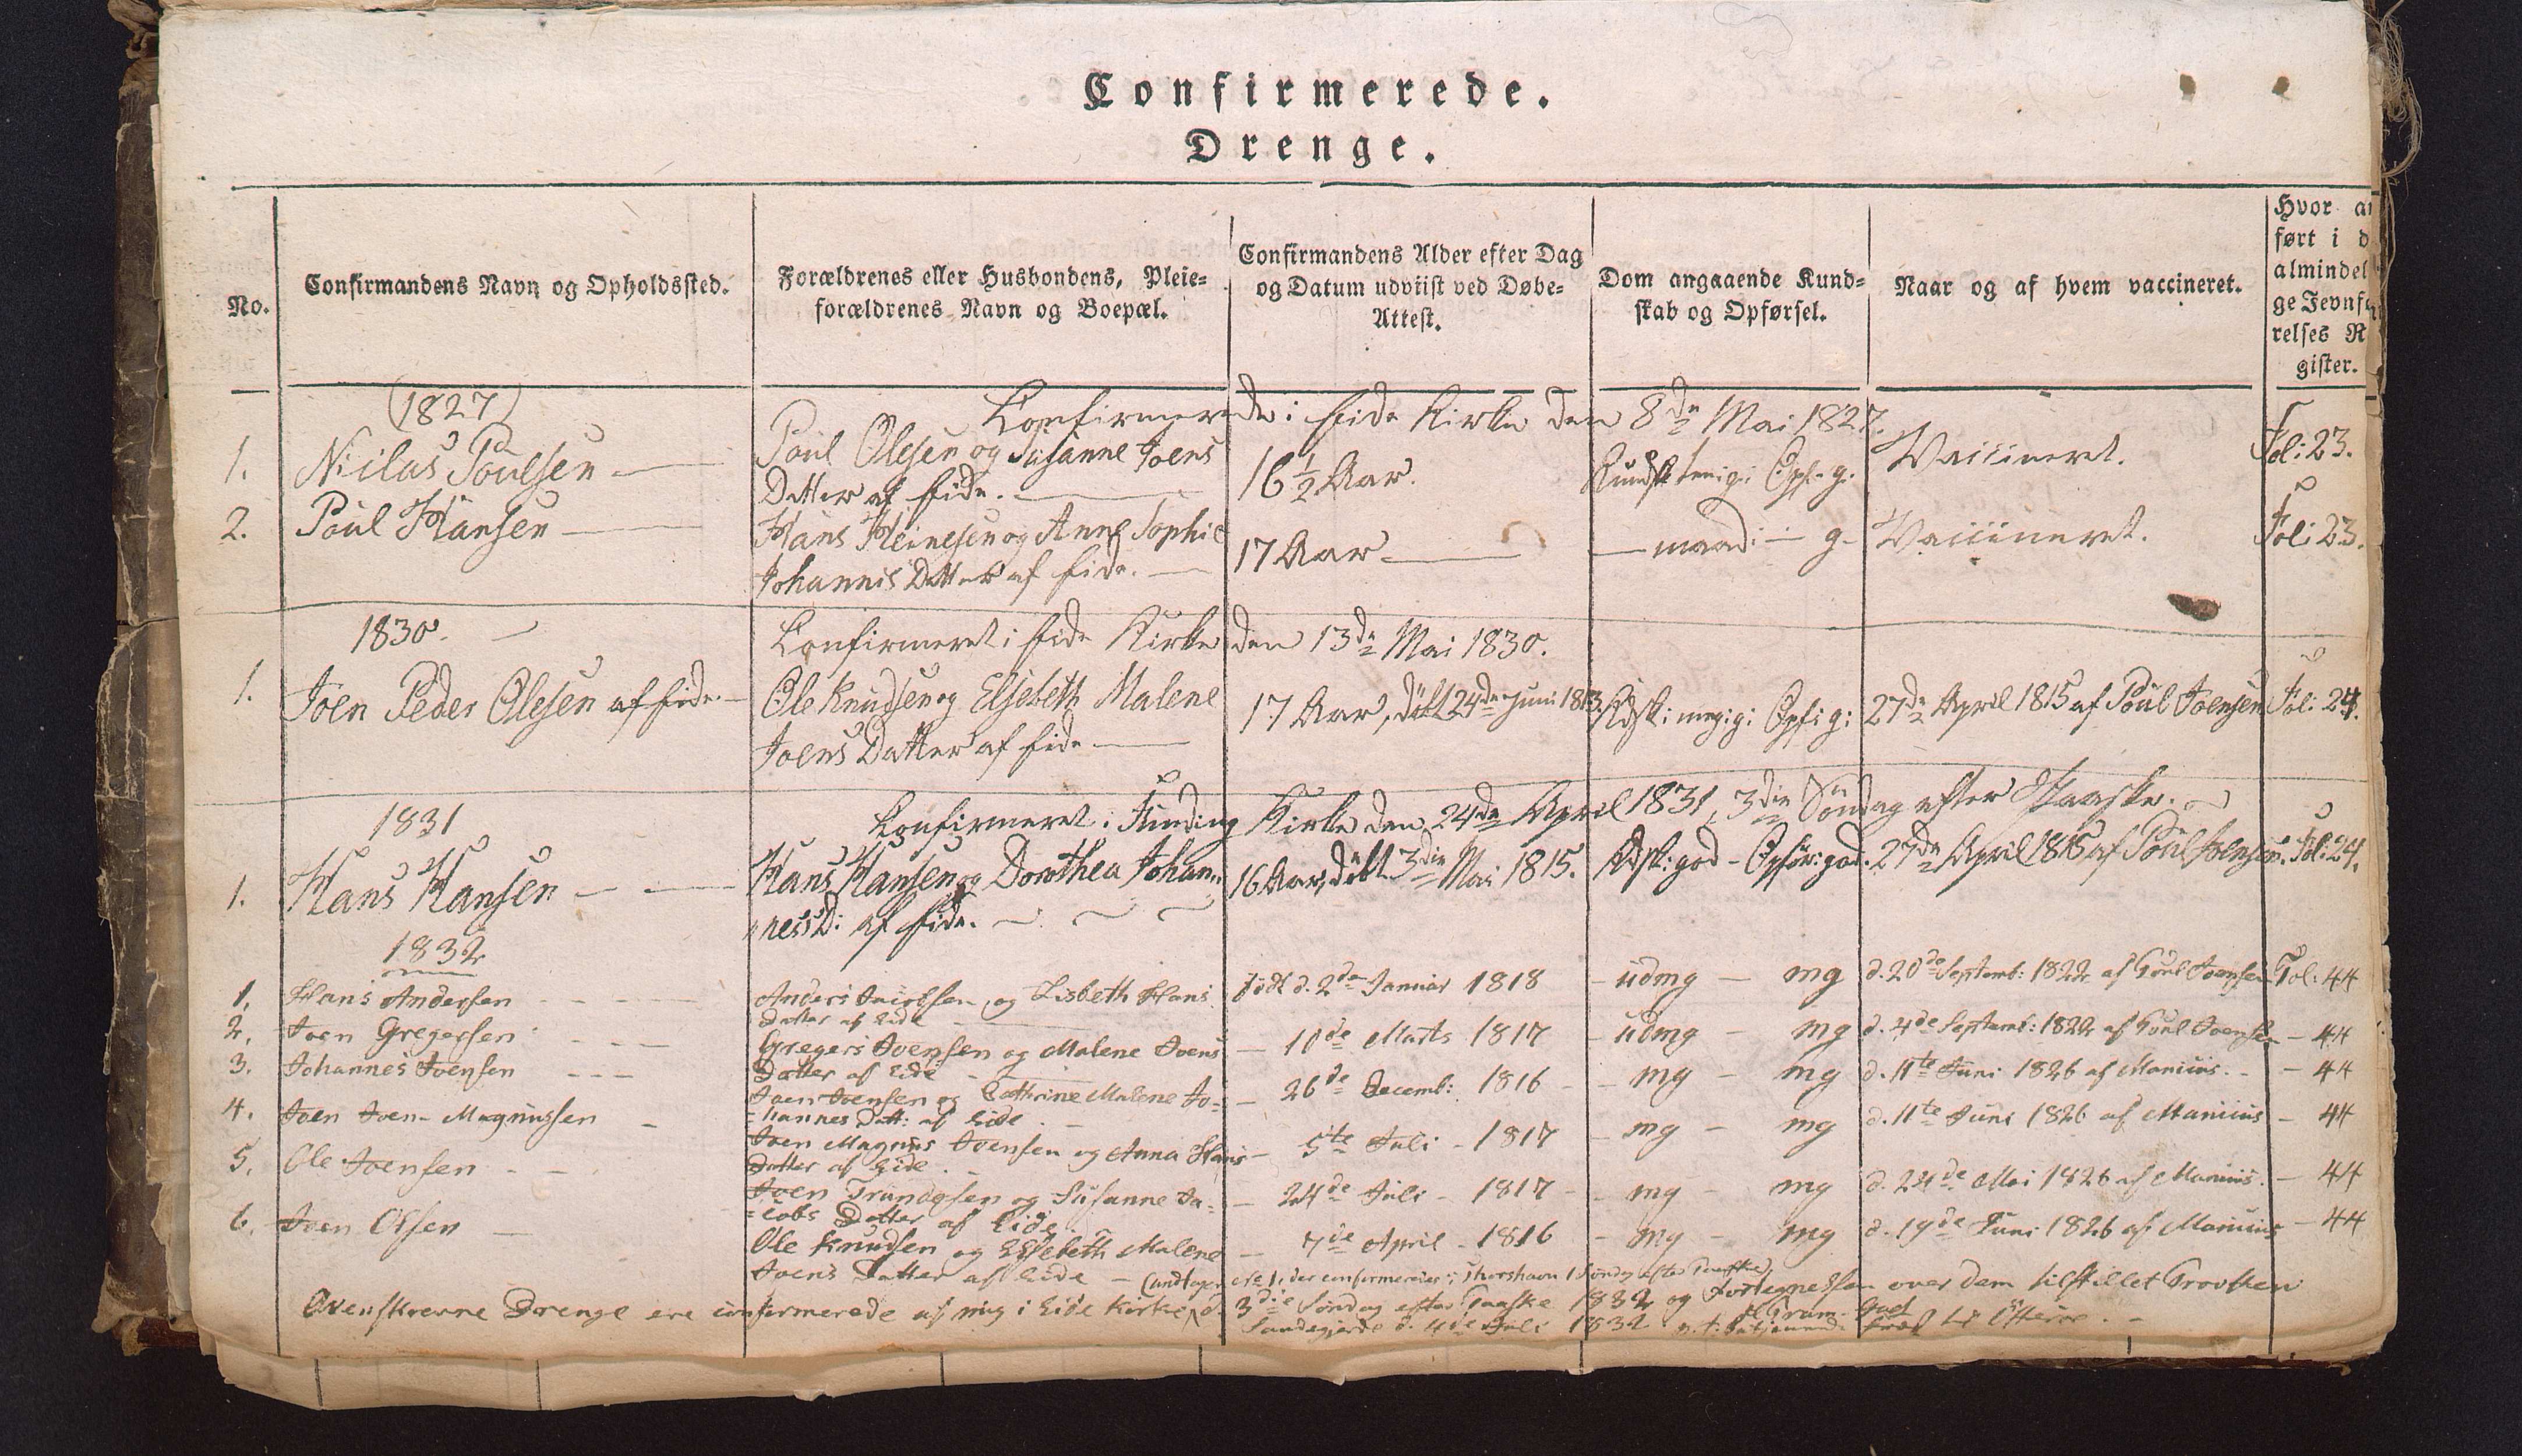 Confirmerede.
Drenge.
No.
Confirmandens Navn og Opholdssted.
Forældrenes eller Husbondens, Pleie=
forældrenes Navn og Boepæl.
Confirmandens Alder efter Dag
og Datum udviist ved Døbe=
Attest.
Dom angaaende Kund=
skab og Opførsel.
Naar og af hvem vaccineret.
Hvor an
ført i d
almindel
ge Jevnfø
relses R
gister.
(1827)
Confirmerede i Eide Kirke den 8de Mai 1827.
1. Niclas Poulsen
Poul Olesen og Susanne Joens
Datter af Eide.
16 1/2 Aar.
Vaccineret.
Fol: 23.
2. Poul Hansen
Hans Heinesen og Anne Sophie
Johannis Datter af Eide.
17 Aar
maad: g.
Vaccineret.
Fol: 23.
1830.
Confirmeret i Eide Kirke den 13de Mai 1830.
1. Joen Peder Olesen af Eide.
Ole Knudsen og Elsebeth Malene
Joens Datter af Eide
17 Aar, døbt 24de Juni 1813.
Kdsk: meg: g: Opf: g:
27de April 1815 af Poul Joensen
Fol: 24.
1831
Confirmeret i Funding Kirke den 24de April 1831, 3die Søndag efter Paaske.
1. Hans Hansen
Hans Hansen og Dorothea Johan=
nes D: af Eide.
16 Aar, døbt 3die Mai 1815.
Kdsk: god - Opfør: god.
27de April 1815 af Poul Joensen.
Fol: 24.
1832
1. Hans Andersen
Anders Jacobsen og Lisbeth Hans
Datter af Eide
født d. 2den Januar 1818
- udmg - mg
d. 20de Septemb: 1822 af Poul Joensen
Fol: 44
2. Joen Gregersen
Gregers Joensen og Malene Joens
Datter af Eide
- 10de Marts 1817
- udmg - mg
d. 4de Septemb: 1822 af Poul Joensen
- 44
3. Johannes Joensen
Joen Joensen og Cathrine Malene Jo=
=hannes Datt: af Eide
- 26de Decemb: 1816
- mg - mg
d. 11te Juni 1826 af Manicus.
- 44
4. Joen Joen- Magnussen
Joen Magnus Joensen og Anna Hans
Datter af Eide.
- 5te Juli - 1817
- mg - mg
d. 11te Juni 1826 af Manicus
- 44
5. Ole Joensen
Joen Trundesen og Susanne Ja=
=cobs Datter af Eide
- 24de Juli - 1817
- mg - mg
d. 24de Mai 1826 af Manicus.
- 44
6. Joen Olsen
Ole Knudsen og Elsebeth Malene
Joens Datter af Eide
- 7de April - 1816
- mg - mg
d. 19de Juni 1826 af Manicus
- 44
(undtagen No 1, der confirmeredes i Thorshavn 1 Søndag efter Paaske)
Ovenskrevne Drenge ere confirmerede af mig i Eide Kirke, d. 3die Søndag efter Paaske 1832 og Fortegnelsen over dem tilstillet Provsten
Sandegjerde d. 4de Juli 1832